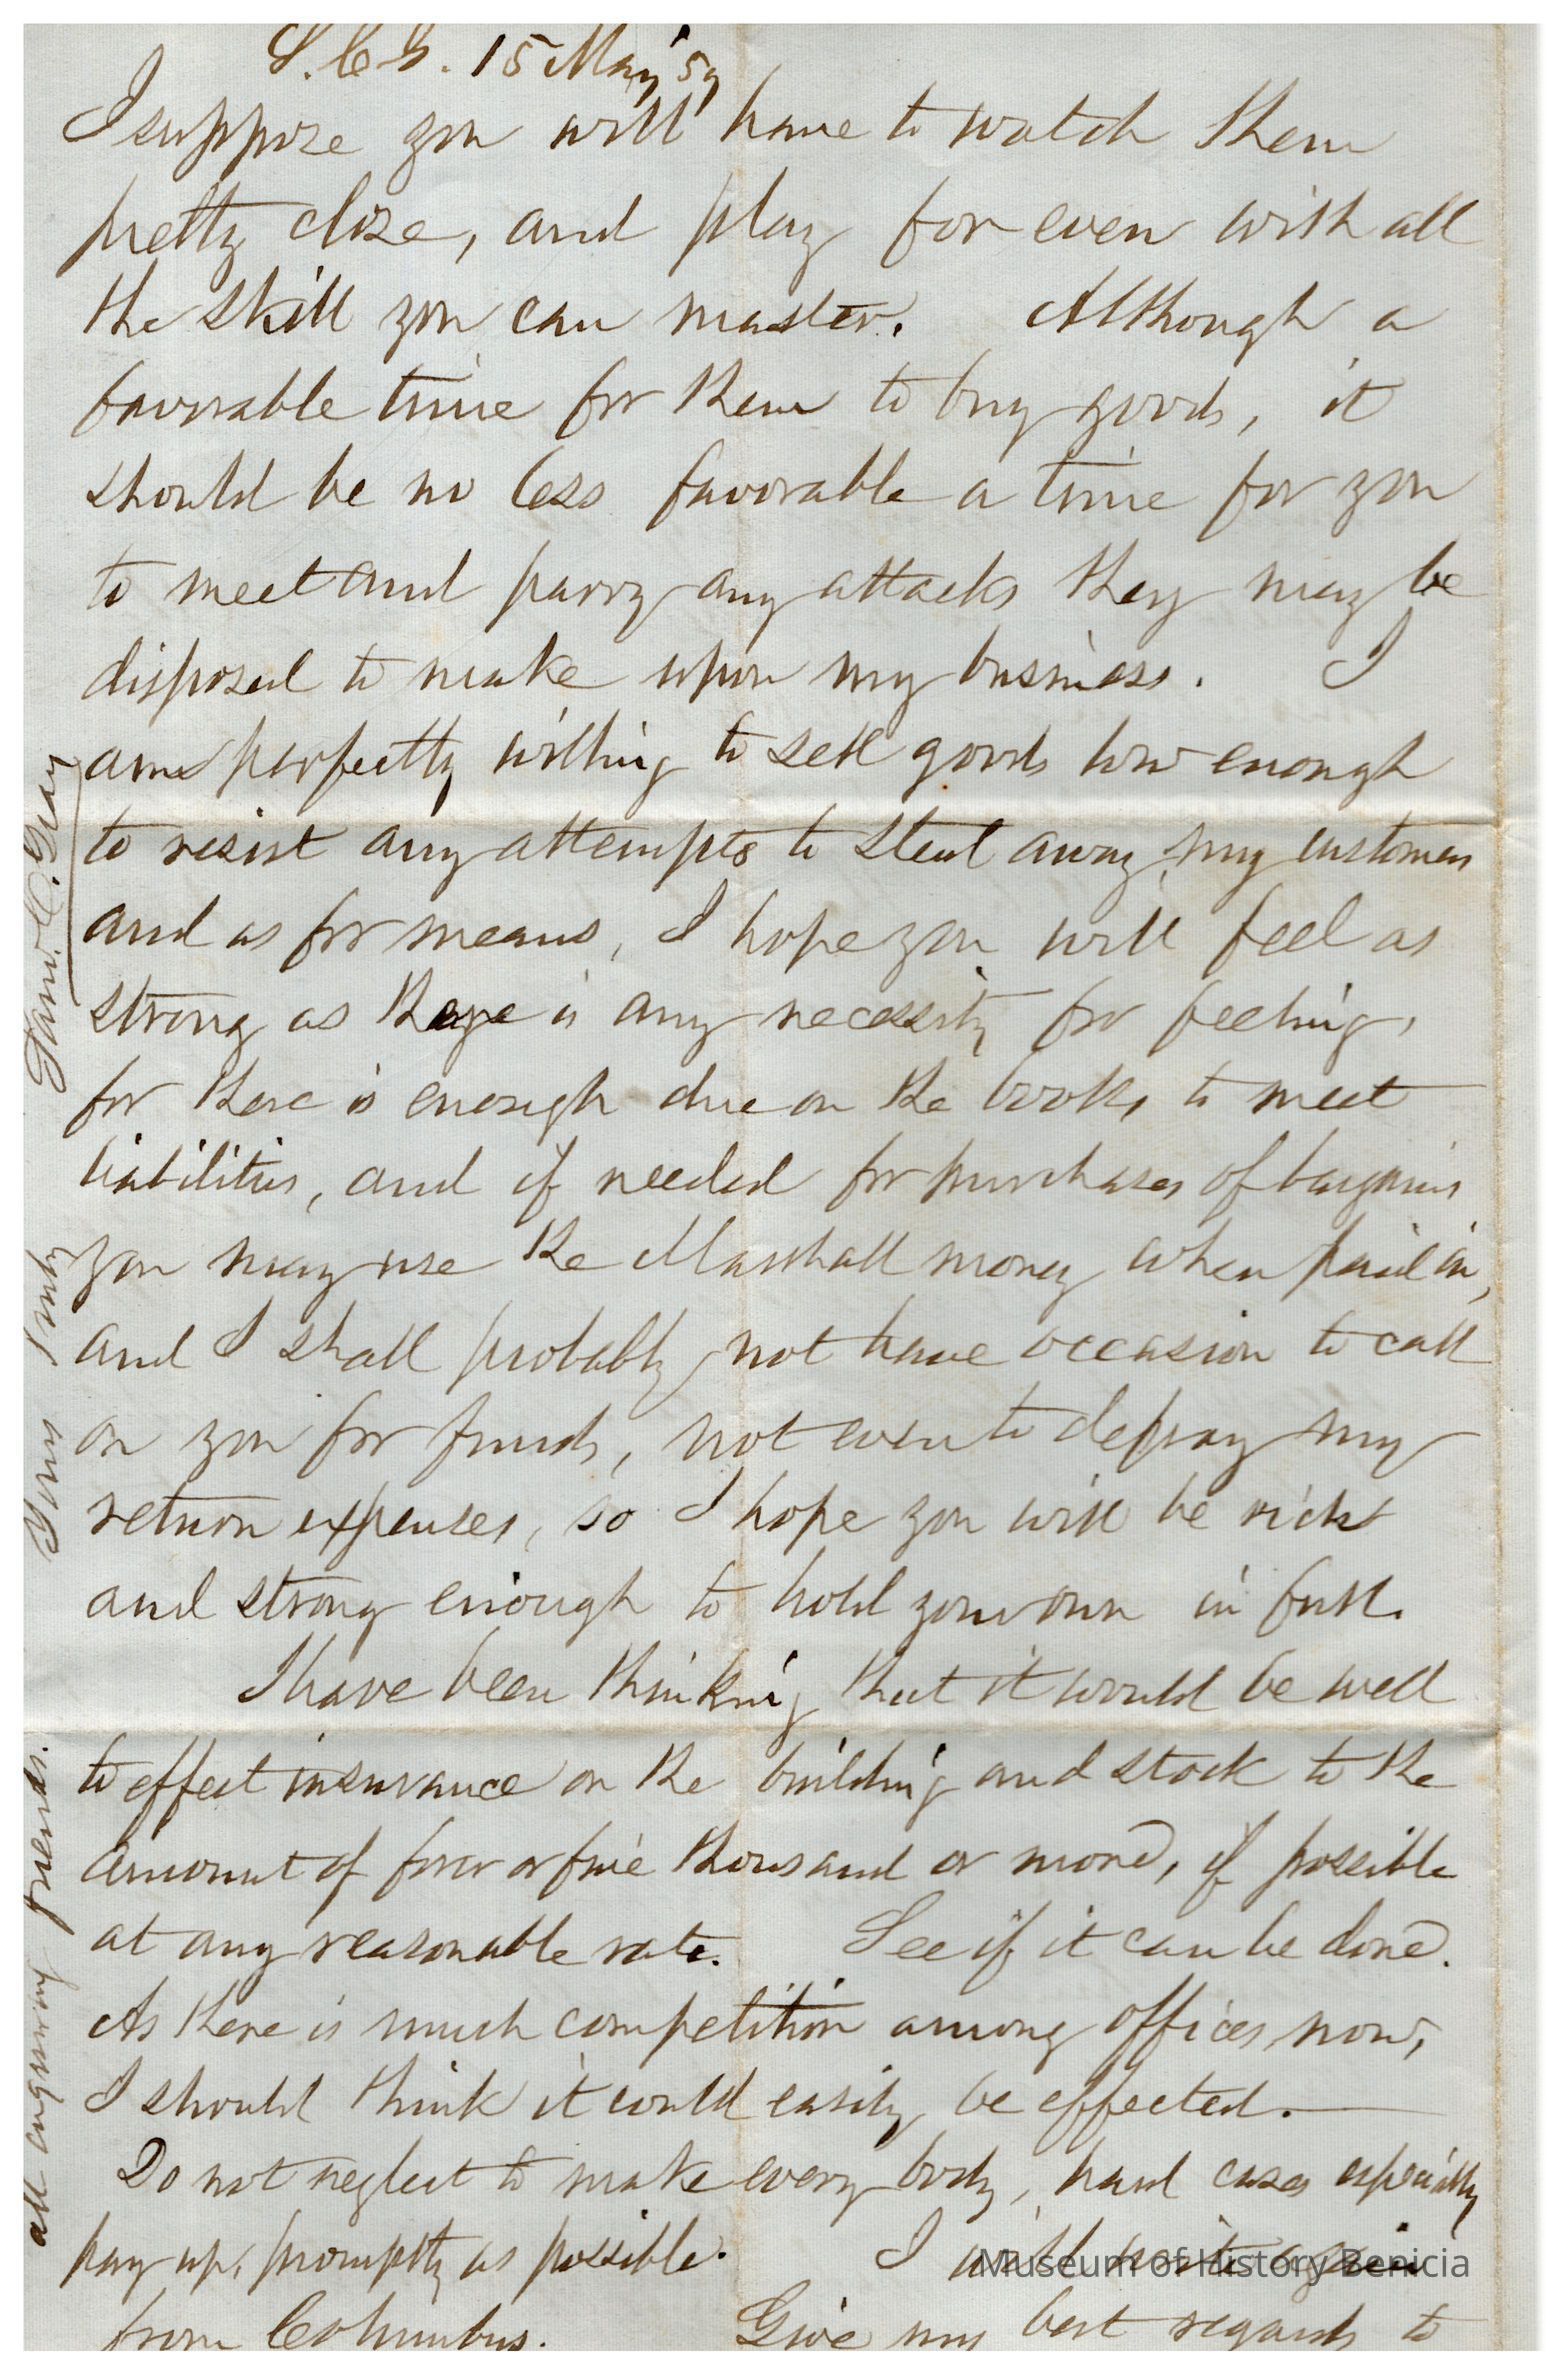 S.C.G. 15 May '59
I suppose you will have to watch them
pretty close, and play for even with all
the skill you can master. Although a
favorable time for them to buy goods, it
should be no less favorable a time for you
to meet and parry any attacks they may be
disposed to make upon my business. I
am perfectly willing to sell goods low enough
to resist any attempts to steal away my customers
and as for means, I hope you will feel as
strong as there is any necessity for feeling,
for there is enough due on the books to meet
liabilities, and if needed for purchases of bargains
you may use the Marshall money when paid in,
and I shall probably not have occasion to call
on you for funds, not even to defray my
return expenses, so I hope you will be rich
and strong enough to hold your own in full.
I have been thinking that it would be well
to effect insurance on the building and stock to the
amount of four or five thousand or more, if possible
at any reasonable rate. See if it can be done.
As there is much competition among offices now,
I should think it could easily be effected.
Do not neglect to make every body, hard cases especially
pay up, promptly as possible. I will write again
from Columbus. Give my best regards to
all enquiring friends. Yours Truly Saml. C. Gray
Museum of History Benicia